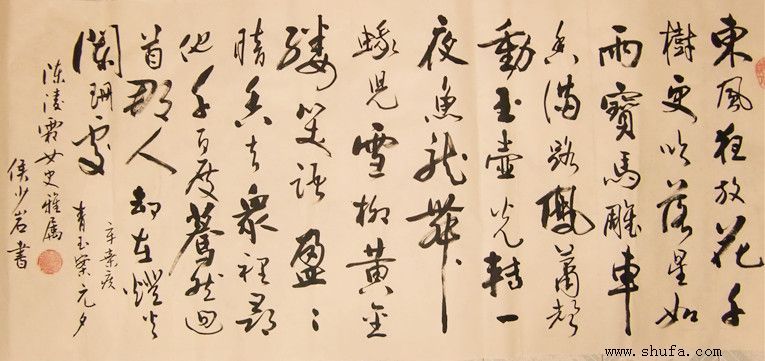 東風狂放花千
樹更吹落星如
雨寶馬雕車
香滿路鳳簫聲
動玉壺光轉一
夜魚龍舞
蛾兒雪柳黃金
縷笑語盈〻
暗香去眾裡尋
他千百度驀然迴
首那人却在燈火
闌珊處
辛棄疾
青玉案元夕
陳淩霜女史雅屬
侯少岩書
www.shufa.com